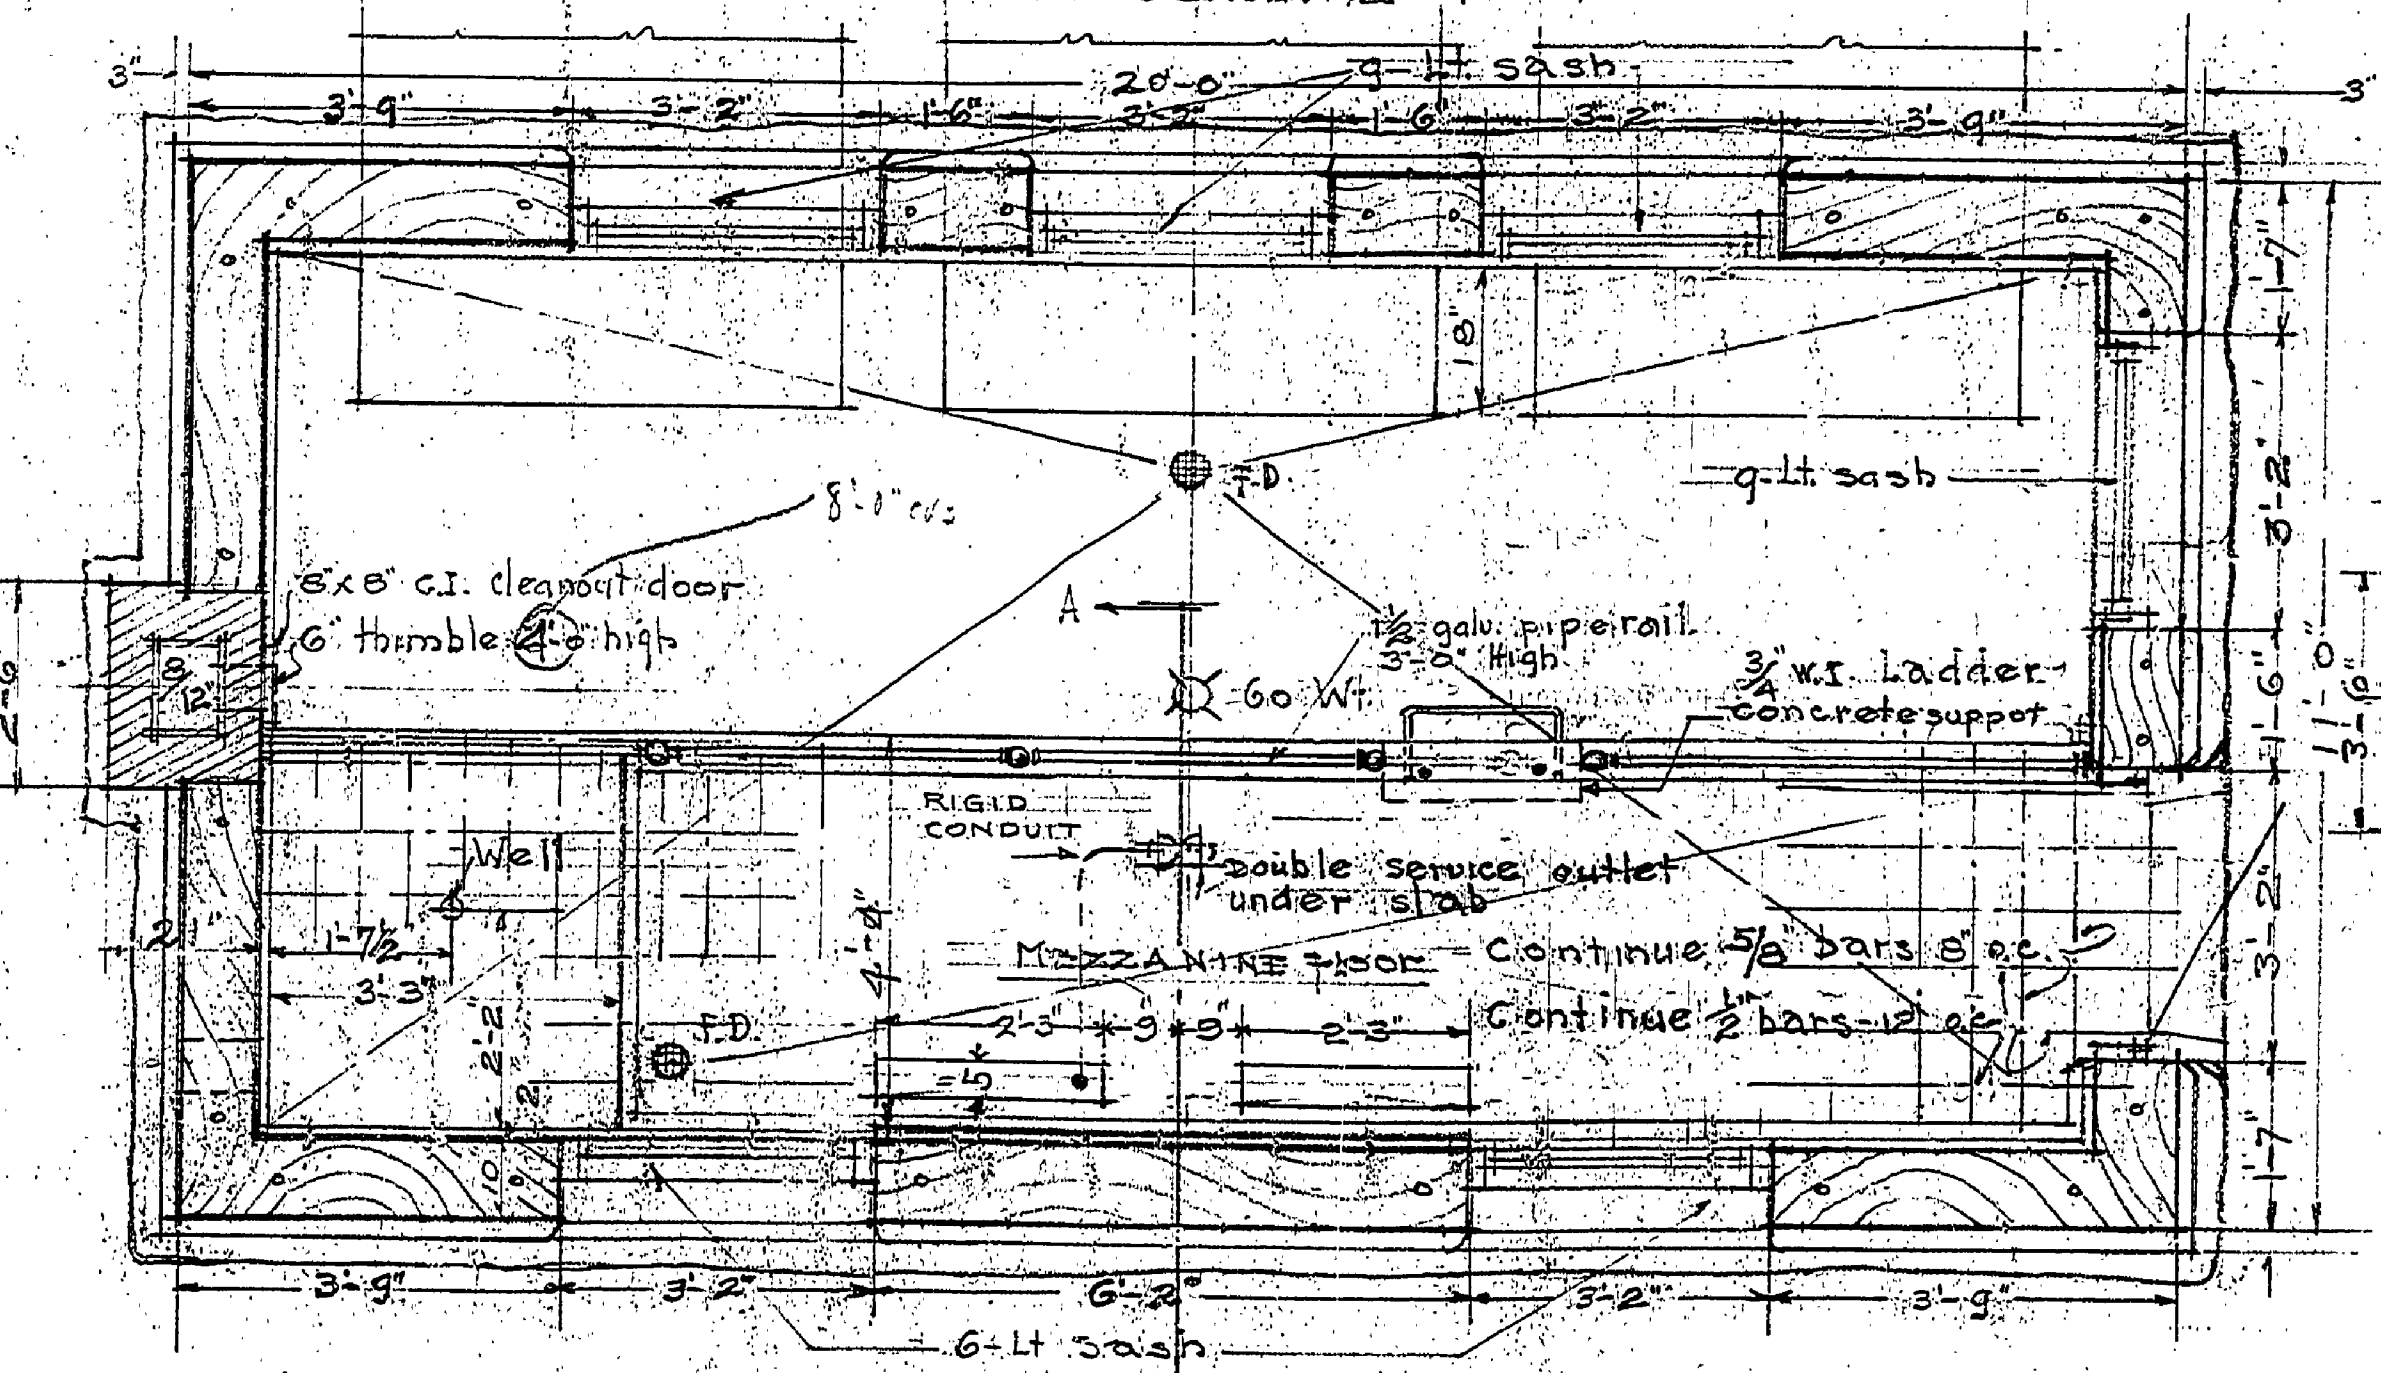 9-Lt. sash
3"
20'-0"
3"
3'-9"
3'-2"
1'-6"
3'-2"
1'-6"
3'-2"
3'-9"
1'-7"
18"
F.D.
9-Lt. sash
3'-2"
8"x8" C.I. cleanout door
6" thimble 4'-0" high
A
1½" galv. pipe rail
3'-0" High
60 Wt.
¾" W.I. Ladder
concrete suppot
8
12"
2'-6"
1'-6"
11'-0"
3'-6"
RIGID
CONDUIT
Well
Double service outlet
under slab
4'-0"
2
1'-7½"
3'-3"
2'-2"
Mezzanine Floor
Continue 5/8" bars 8" o.c.
Continue ½" bars-12" o.c.
3'-2"
F.D.
2'-3"
9
9"
2'-3"
5
2
10
1'-7"
3'-9"
3'-2"
6'-2"
3'-2"
3'-9"
6-Lt sash